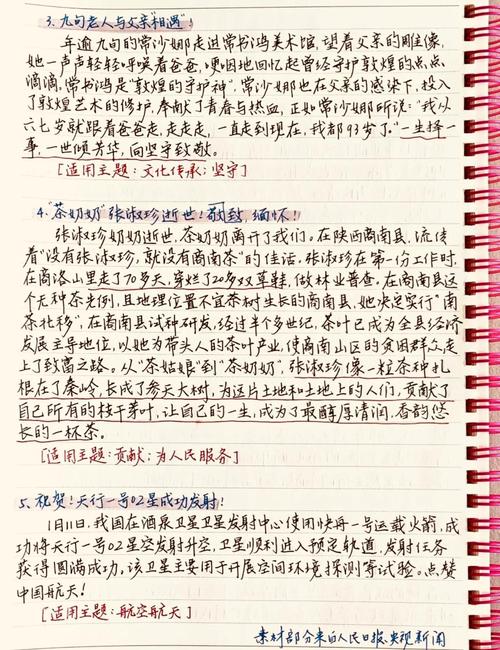 3. 九旬老人与父亲"相遇"!
年逾九旬的常沙娜走进常书鸿美术馆,望着父亲的雕像,
她一声声轻轻呼唤着爸爸,哽咽地回忆起曾经守护敦煌的点点
滴滴,常书鸿是"敦煌的守护神",常沙娜也在父亲的感染下,投入
了敦煌艺术的修护,奉献了青春与热血,正如常沙娜所说:"我从
六七岁就跟着爸爸走,走走走,一直走到现在,我都93岁了。"一生择一
事,一世倾芳华,向坚守致敬。
[适用主题:文化传承;坚守]
4."茶奶奶"张淑珍逝世!致敬,缅怀!
张淑珍奶奶逝世,茶奶奶离开了我们。在陕西商南县,流传
着"没有张淑珍,就没有商南茶"的佳话。张淑珍在第一份工作时,
在商洛山里走了70多天,穿烂了20多双草鞋,做林业普查。在商南县这
个无种茶先例,且地理位置不宜茶树生长的商南县,她决定实行"南
茶北移",在商南县试种研发,经过半个多世纪,茶叶已成为全县经济
发展主导地位,以她为带头人的茶叶产业,使商南山区的贫困群众走
上了致富之路。从"茶姑娘"到"茶奶奶",张淑珍像一粒茶种扎
根在了秦岭,长成了参天大树,为这片土地和土地上的人们,贡献了
自己所有的枝干芽叶,让自己的一生,成为了最醇厚清润、香韵悠
长的一杯茶。
[适用主题:贡献;为人民服务]
5、祝贺!天行一号02星成功发射!
1月11日,我国在酒泉卫星卫星发射中心使用快舟一号运载火箭,成
功将天行一号02星空发射升空,卫星顺利进入预定轨道,发射任务
获得圆满成功。该卫星主要用于开展空间环境探测等试验。点赞
中国航天!
[适用主题:航空航天]
素材部分来自人民日报、央视新闻